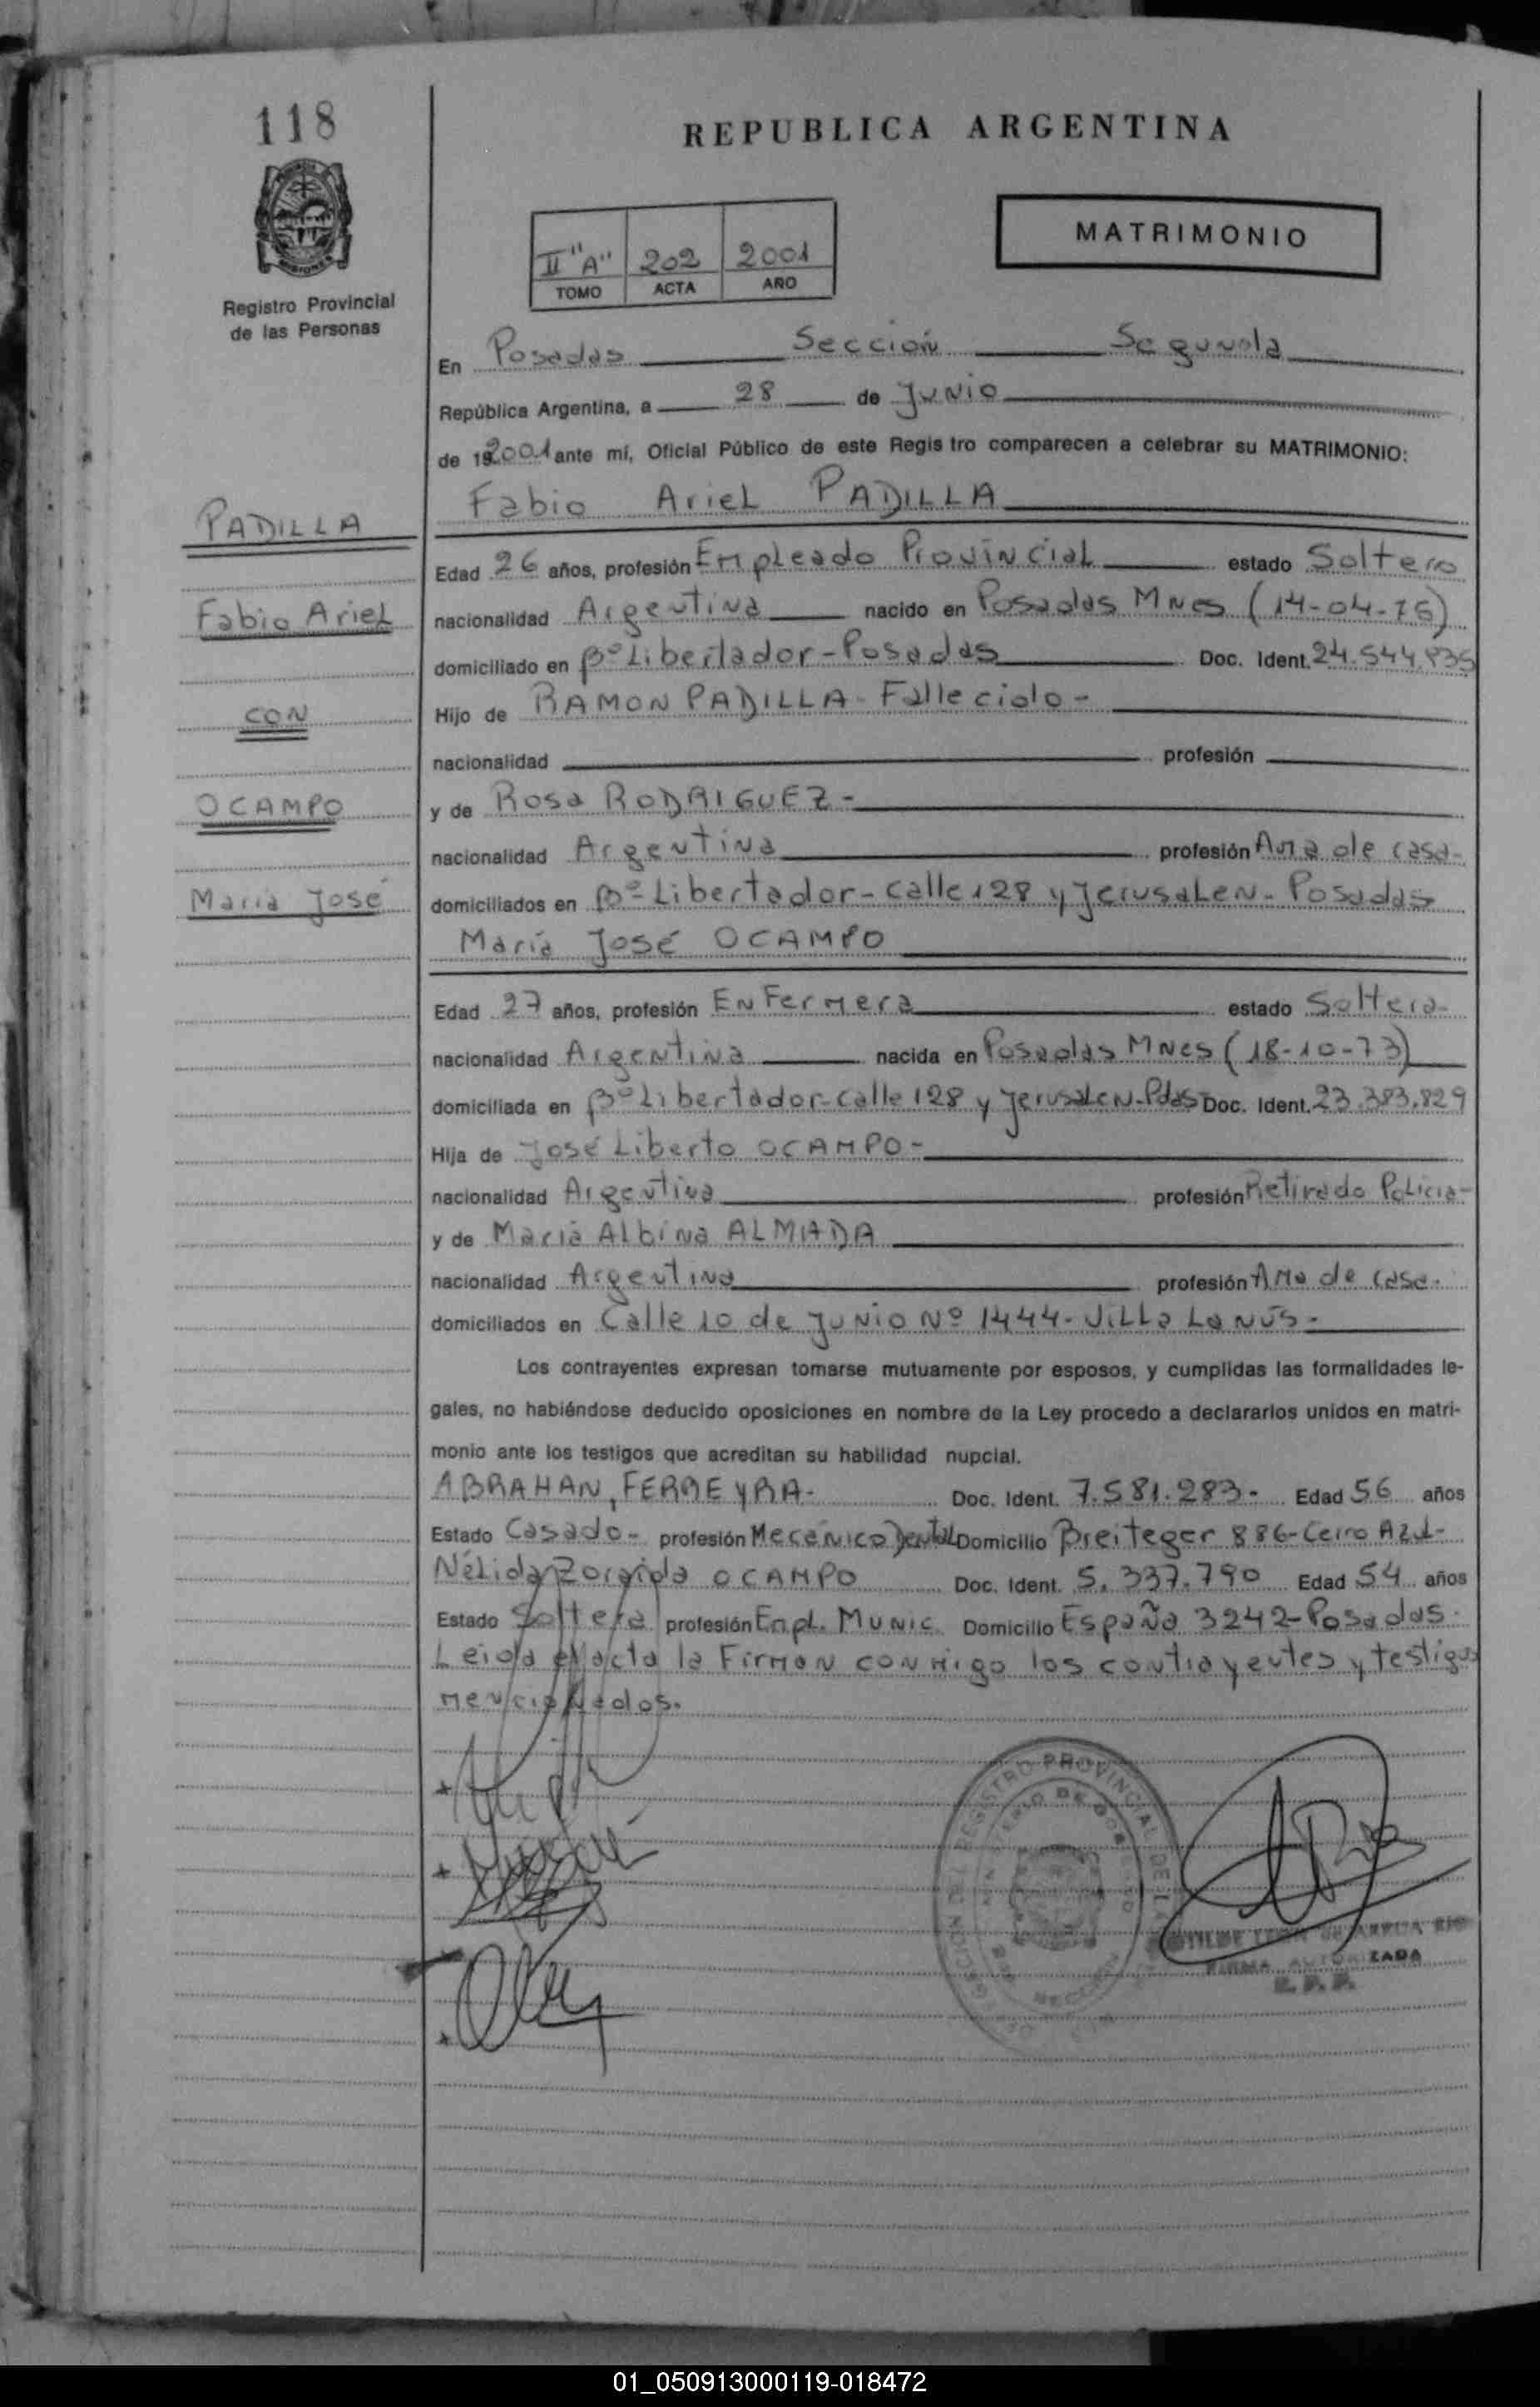 118
REPUBLICA ARGENTINA
MISIONES
Registro Provincial
de las Personas
II "A" 202 2001
TOMO ACTA AÑO
MATRIMONIO
En Posadas Sección Segunda
República Argentina, a 28 de Junio
de 192001 ante mí, Oficial Público de este Regis tro comparecen a celebrar su MATRIMONIO:
Fabio Ariel PADILLA
PADILLA
Edad 26 años, profesión Empleado Provincial estado Soltero
Fabio Ariel
nacionalidad Argentina nacido en Posadas Mnes (14-04-75)
domiciliado en Bº Libertador - Posadas Doc. Ident. 24.544.835
CON
Hijo de RAMON PADILLA - Fallecido -
nacionalidad profesión
OCAMPO
y de Rosa RODRIGUEZ -
nacionalidad Argentina profesión Ama de casa-
María José
domiciliados en Bº Libertador - calle 128 y Jerusalen - Posadas
María José OCAMPO
Edad 27 años, profesión Enfermera estado Soltera-
nacionalidad Argentina nacida en Posadas Mnes (18-10-73)
domiciliada en Bº Libertador - calle 128 y Jerusalen - Pdas Doc. Ident. 23.383.829
Hija de José Liberto OCAMPO -
nacionalidad Argentina profesión Retirado Policia-
y de María Albina ALMADA
nacionalidad Argentina profesión Ama de casa.
domiciliados en Calle 10 de Junio Nº 1444 - Villa Lanús -
Los contrayentes expresan tomarse mutuamente por esposos, y cumplidas las formalidades le-
gales, no habiéndose deducido oposiciones en nombre de la Ley procedo a declararlos unidos en matri-
monio ante los testigos que acreditan su habilidad nupcial.
ABRAHAN, FERREYRA - Doc. Ident. 7.581.283 - Edad 56 años
Estado Casado - profesión Mecánico Dental Domicilio Breiteger 886 - Cerro Azul-
Nélida Zoraida OCAMPO Doc. Ident. 5.337.790 Edad 54 años
Estado Soltera profesión Empl. Munic. Domicilio España 3242 - Posadas.
Leida el acta la Firman conmigo los contrayentes y testigos
mencionados.
REGISTRO PROVINCIAL DE LAS
FIRMA AUTORIZADA
01_050913000119-018472